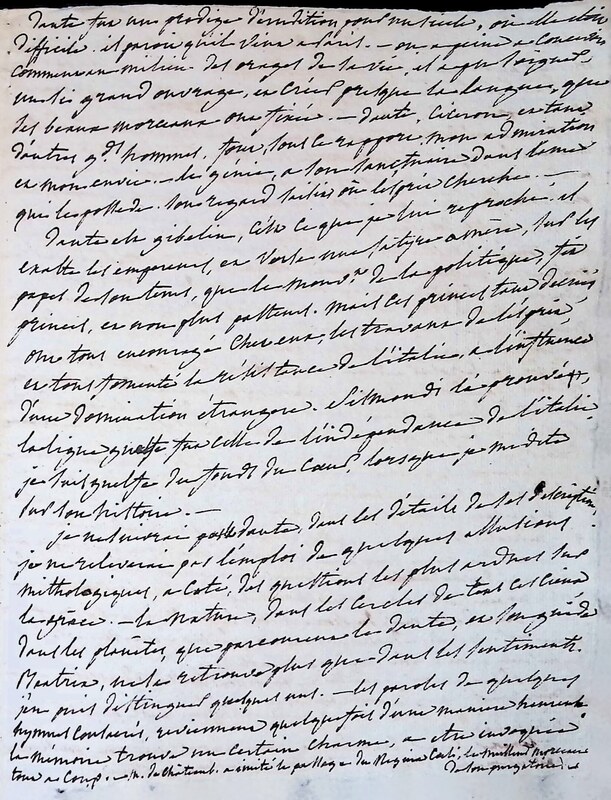 Dante fut un prodige d'érudition pour un siècle, où elle étoit
difficile. il paroit qu'il vint a paris. – on a peine a concevoir
comment au milieu des orages de la vie, il a pu
un si grand ouvrage, et créé presque la langue, que
ses beaux morceaux ont fixée. – Dante, Ciceron, et tant
d'autres gds hommes. tour, tous ce rapport, mon admiration
et mon envie. – le génie, a son sanctuaire dans l'ame
qui le possede. son regard saisit ou l'esprit cherche. –
Dante est gibelin, c'est ce que je lui reproche, il
exalte les empereurs, et verse une satyre amère, sur les
papes de son tems, que le de la politique, fit
princes, et non plus pasteurs. mais ces princes tant decriés
ont tous encouragé chez eux, les travaux de l'esprit,
et tous fomenté la resistance de l'italie, a l'influence
d'une domination étrangere. Sismondi l'a prouvé,
la ligue guelfe fut celle de l'independance de l'italie
je suis guelfe du fonds du cœur, lorsque je medite
sur son histoire. –
je ne suivrai pas le dante, dans les détails de ses descriptions
je ne releverai pas l'emploi de quelques allusions
mithologiques, a coté, des questions les plus ardues sur
la grâce. – la nature, dans les cercles de tous ces cieux
dans les planètes, que parcourent le dante, et son guide
Beatrix, ne se retrouve plus que dans les sentiments.
j'en puis distinguer quelques uns. – les paroles de quelques
hymnes consacrés, reviennent quelquefois d'une maniere heureuse
la mémoire trouve un certain charme, a etre invoquée
tout a coup. – m. de châteaub. a imité le passage du Regina Coeli, le meilleur morceau
de son purgatoire.